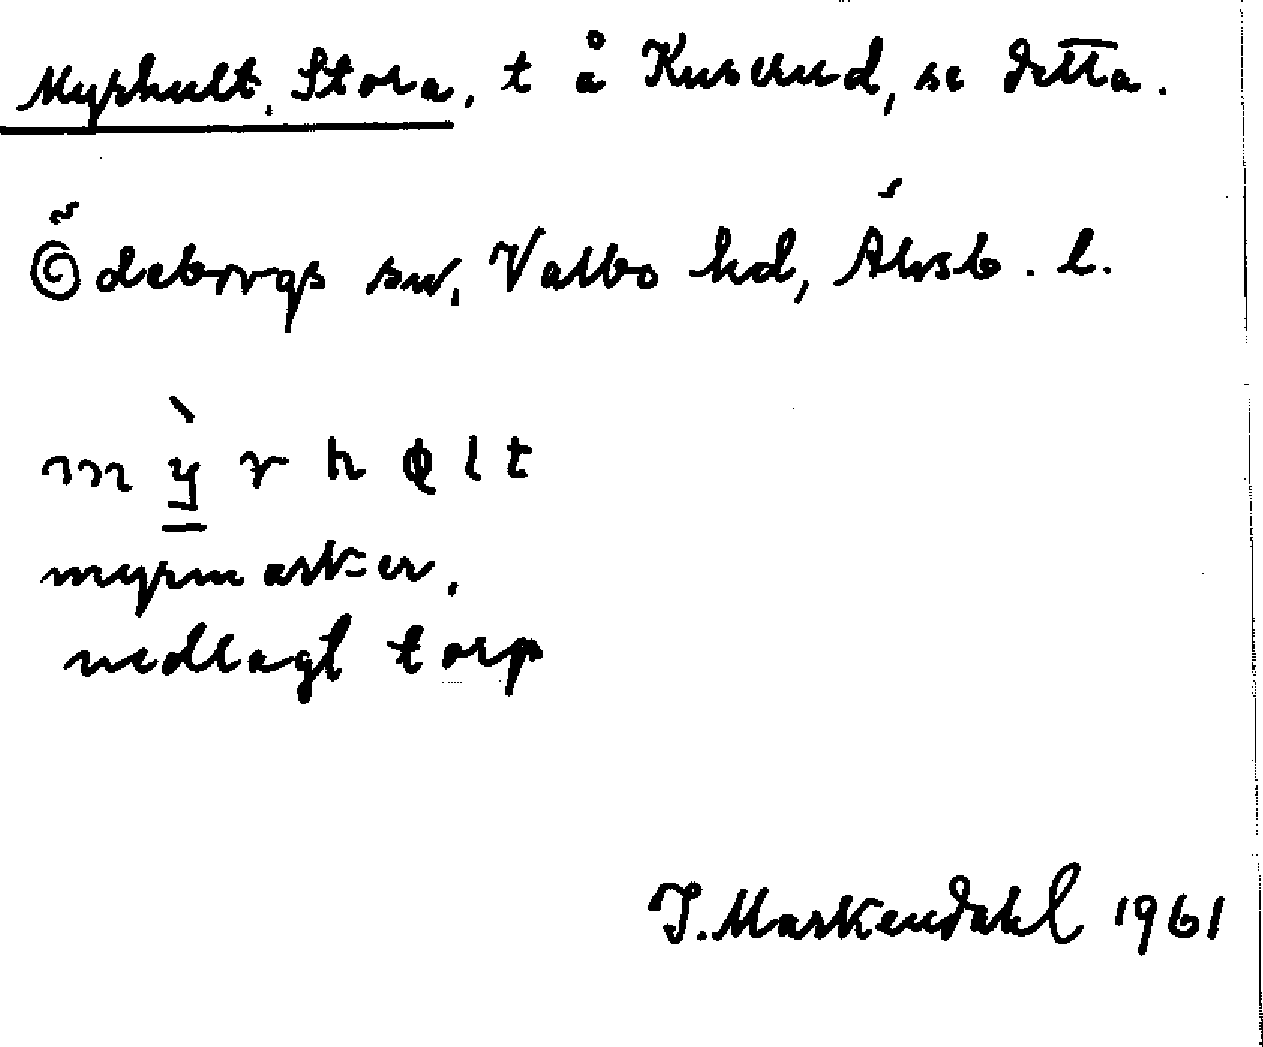 Myrhult, Stora, t å Kuserud, se detta.
Ödeborgs sn, Valbo hd, Älvsb. l.
m ỳ̠ r h ǫ l t
myrmarker,
nedlagt torp
J. Markendahl 1961